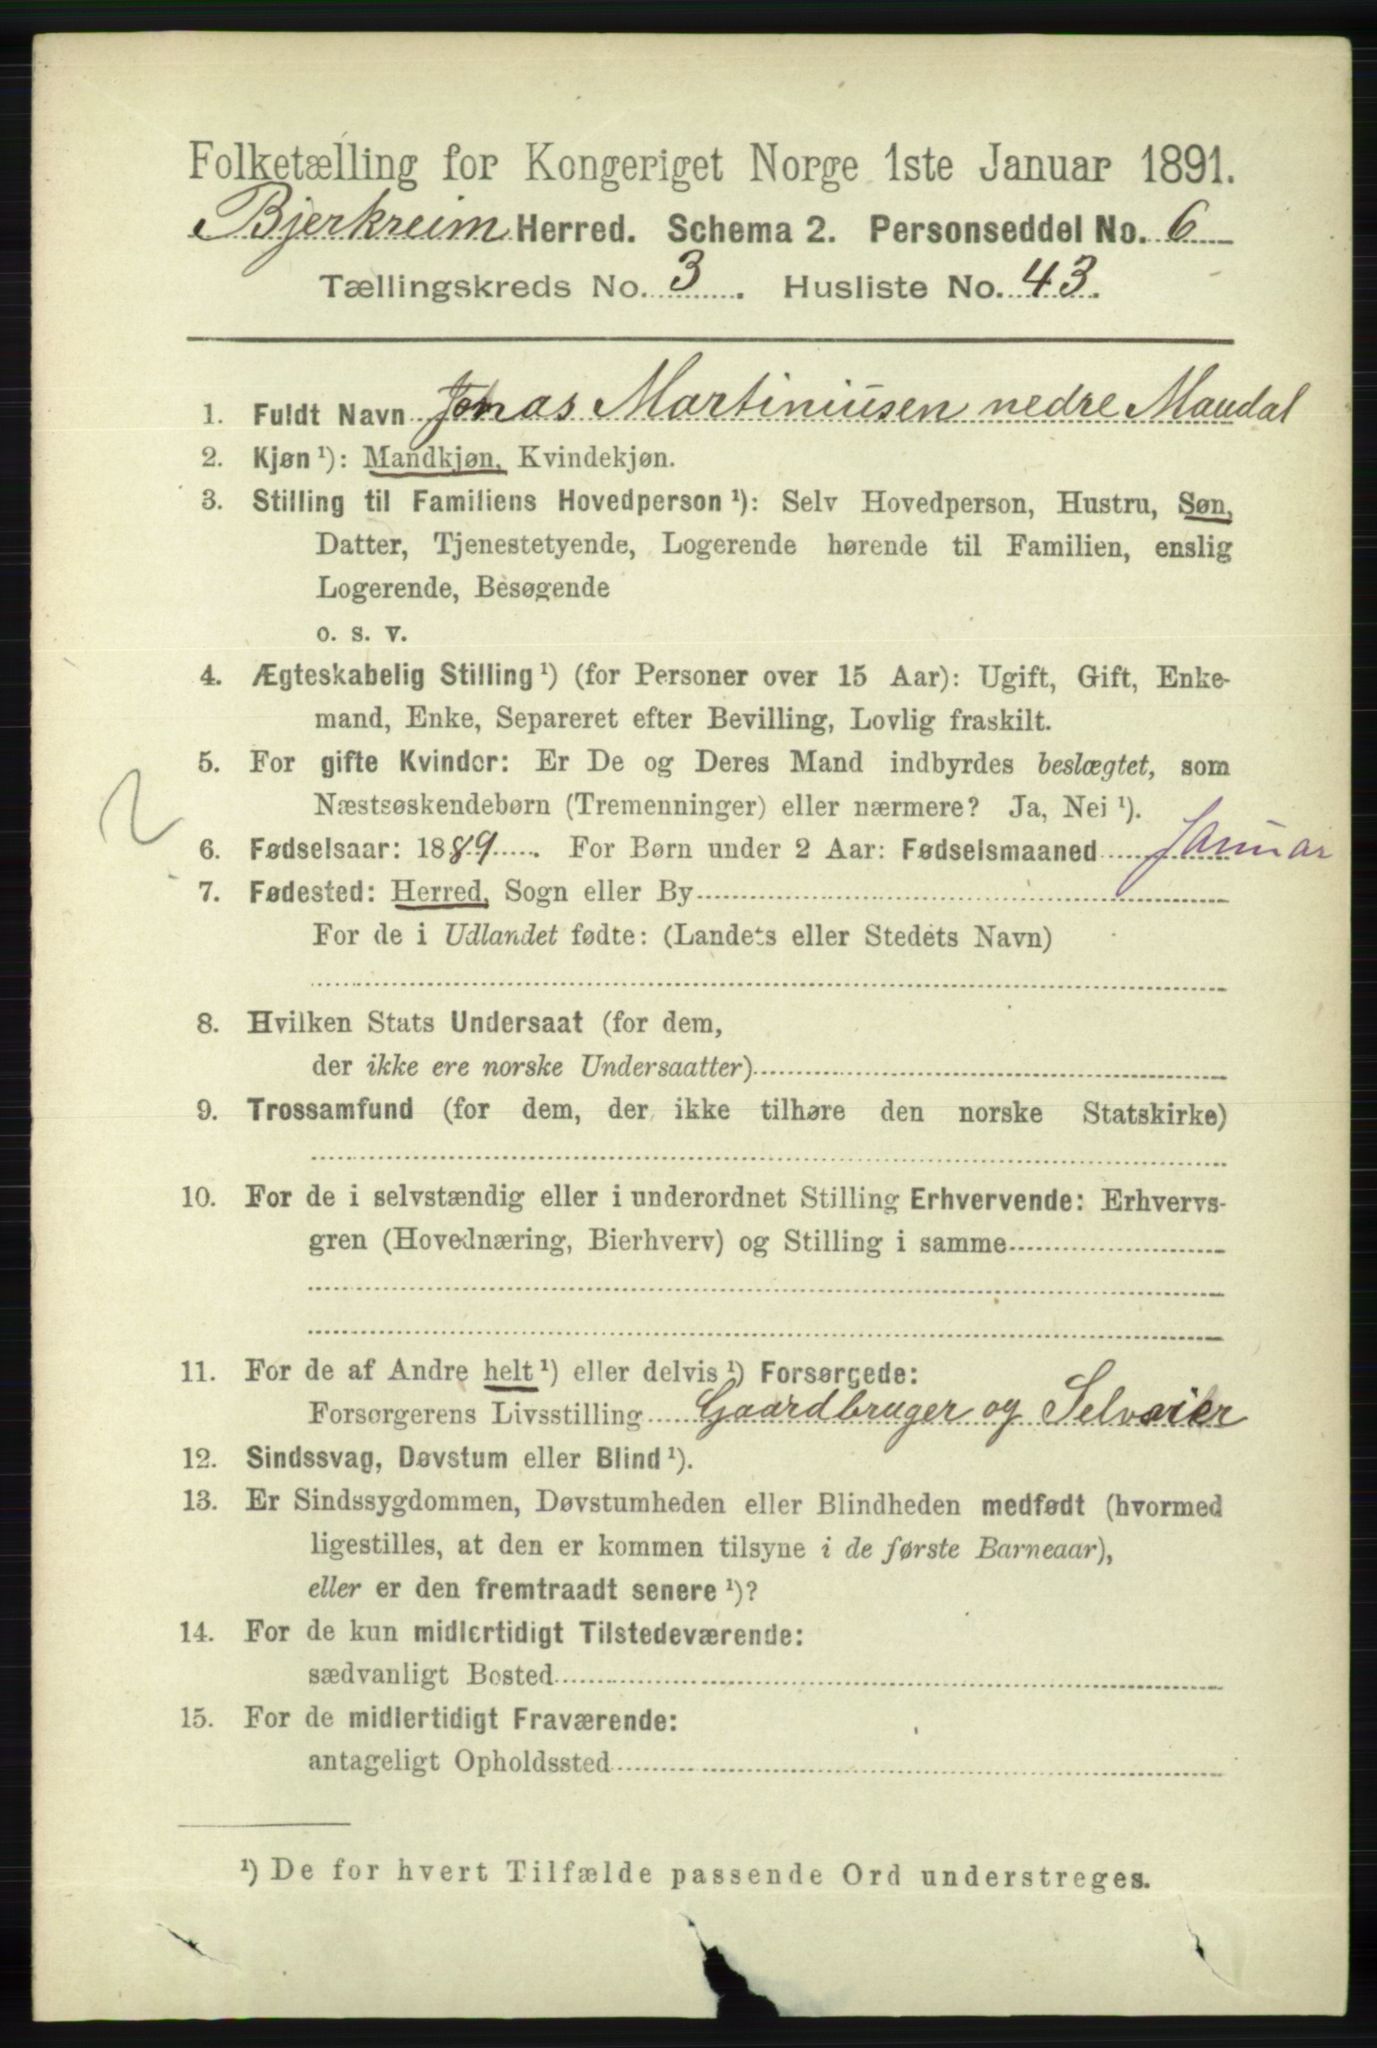 Folketælling for Kongeriget Norge 1ste Januar 1891.
Bjerkreim Herred. Schema 2. Personseddel No. 6
Tællingskreds No. 3. Husliste No. 43.
1. Fuldt Navn Jonas Martiniusen nedre Maudal
2. Kjøn ¹): Mandkjøn, Kvindekjøn.
3. Stilling til Familiens Hovedperson ¹): Selv Hovedperson, Hustru, Søn,
Datter, Tjenestetyende, Logerende hørende til Familien, enslig
Logerende, Besøgende
o. s. v.
4. Ægteskabelig Stilling ¹) (for Personer over 15 Aar): Ugift, Gift, Enke-
mand, Enke, Separeret efter Bevilling, Lovlig fraskilt.
5. For gifte Kvinder: Er De og Deres Mand indbyrdes beslægtet, som
Næstsøskendebørn (Tremenninger) eller nærmere? Ja, Nei ¹).
2
6. Fødselsaar: 1889. For Børn under 2 Aar: Fødselsmaaned Januar
7. Fødested: Herred, Sogn eller By
For de i Udlandet fødte: (Landets eller Stedets Navn)
8. Hvilken Stats Undersaat (for dem,
der ikke ere norske Undersaatter)
9. Trossamfund (for dem, der ikke tilhøre den norske Statskirke)
10. For de i selvstændig eller i underordnet Stilling Erhvervende: Erhvervs-
gren (Hovednæring, Bierhverv) og Stilling i samme
11. For de af Andre helt ¹) eller delvis ¹) Forsørgede:
Forsørgerens Livsstilling Gaardbruger og Selveier
12. Sindssvag, Døvstum eller Blind ¹).
13. Er Sindssygdommen, Døvstumheden eller Blindheden medfødt (hvormed
ligestilles, at den er kommen tilsyne i de første Barneaar),
eller er den fremtraadt senere ¹)?
14. For de kun midlertidigt Tilstedeværende:
sædvanligt Bosted
15. For de midlertidigt Fraværende:
antageligt Opholdssted
¹) De for hvert Tilfælde passende Ord understreges.